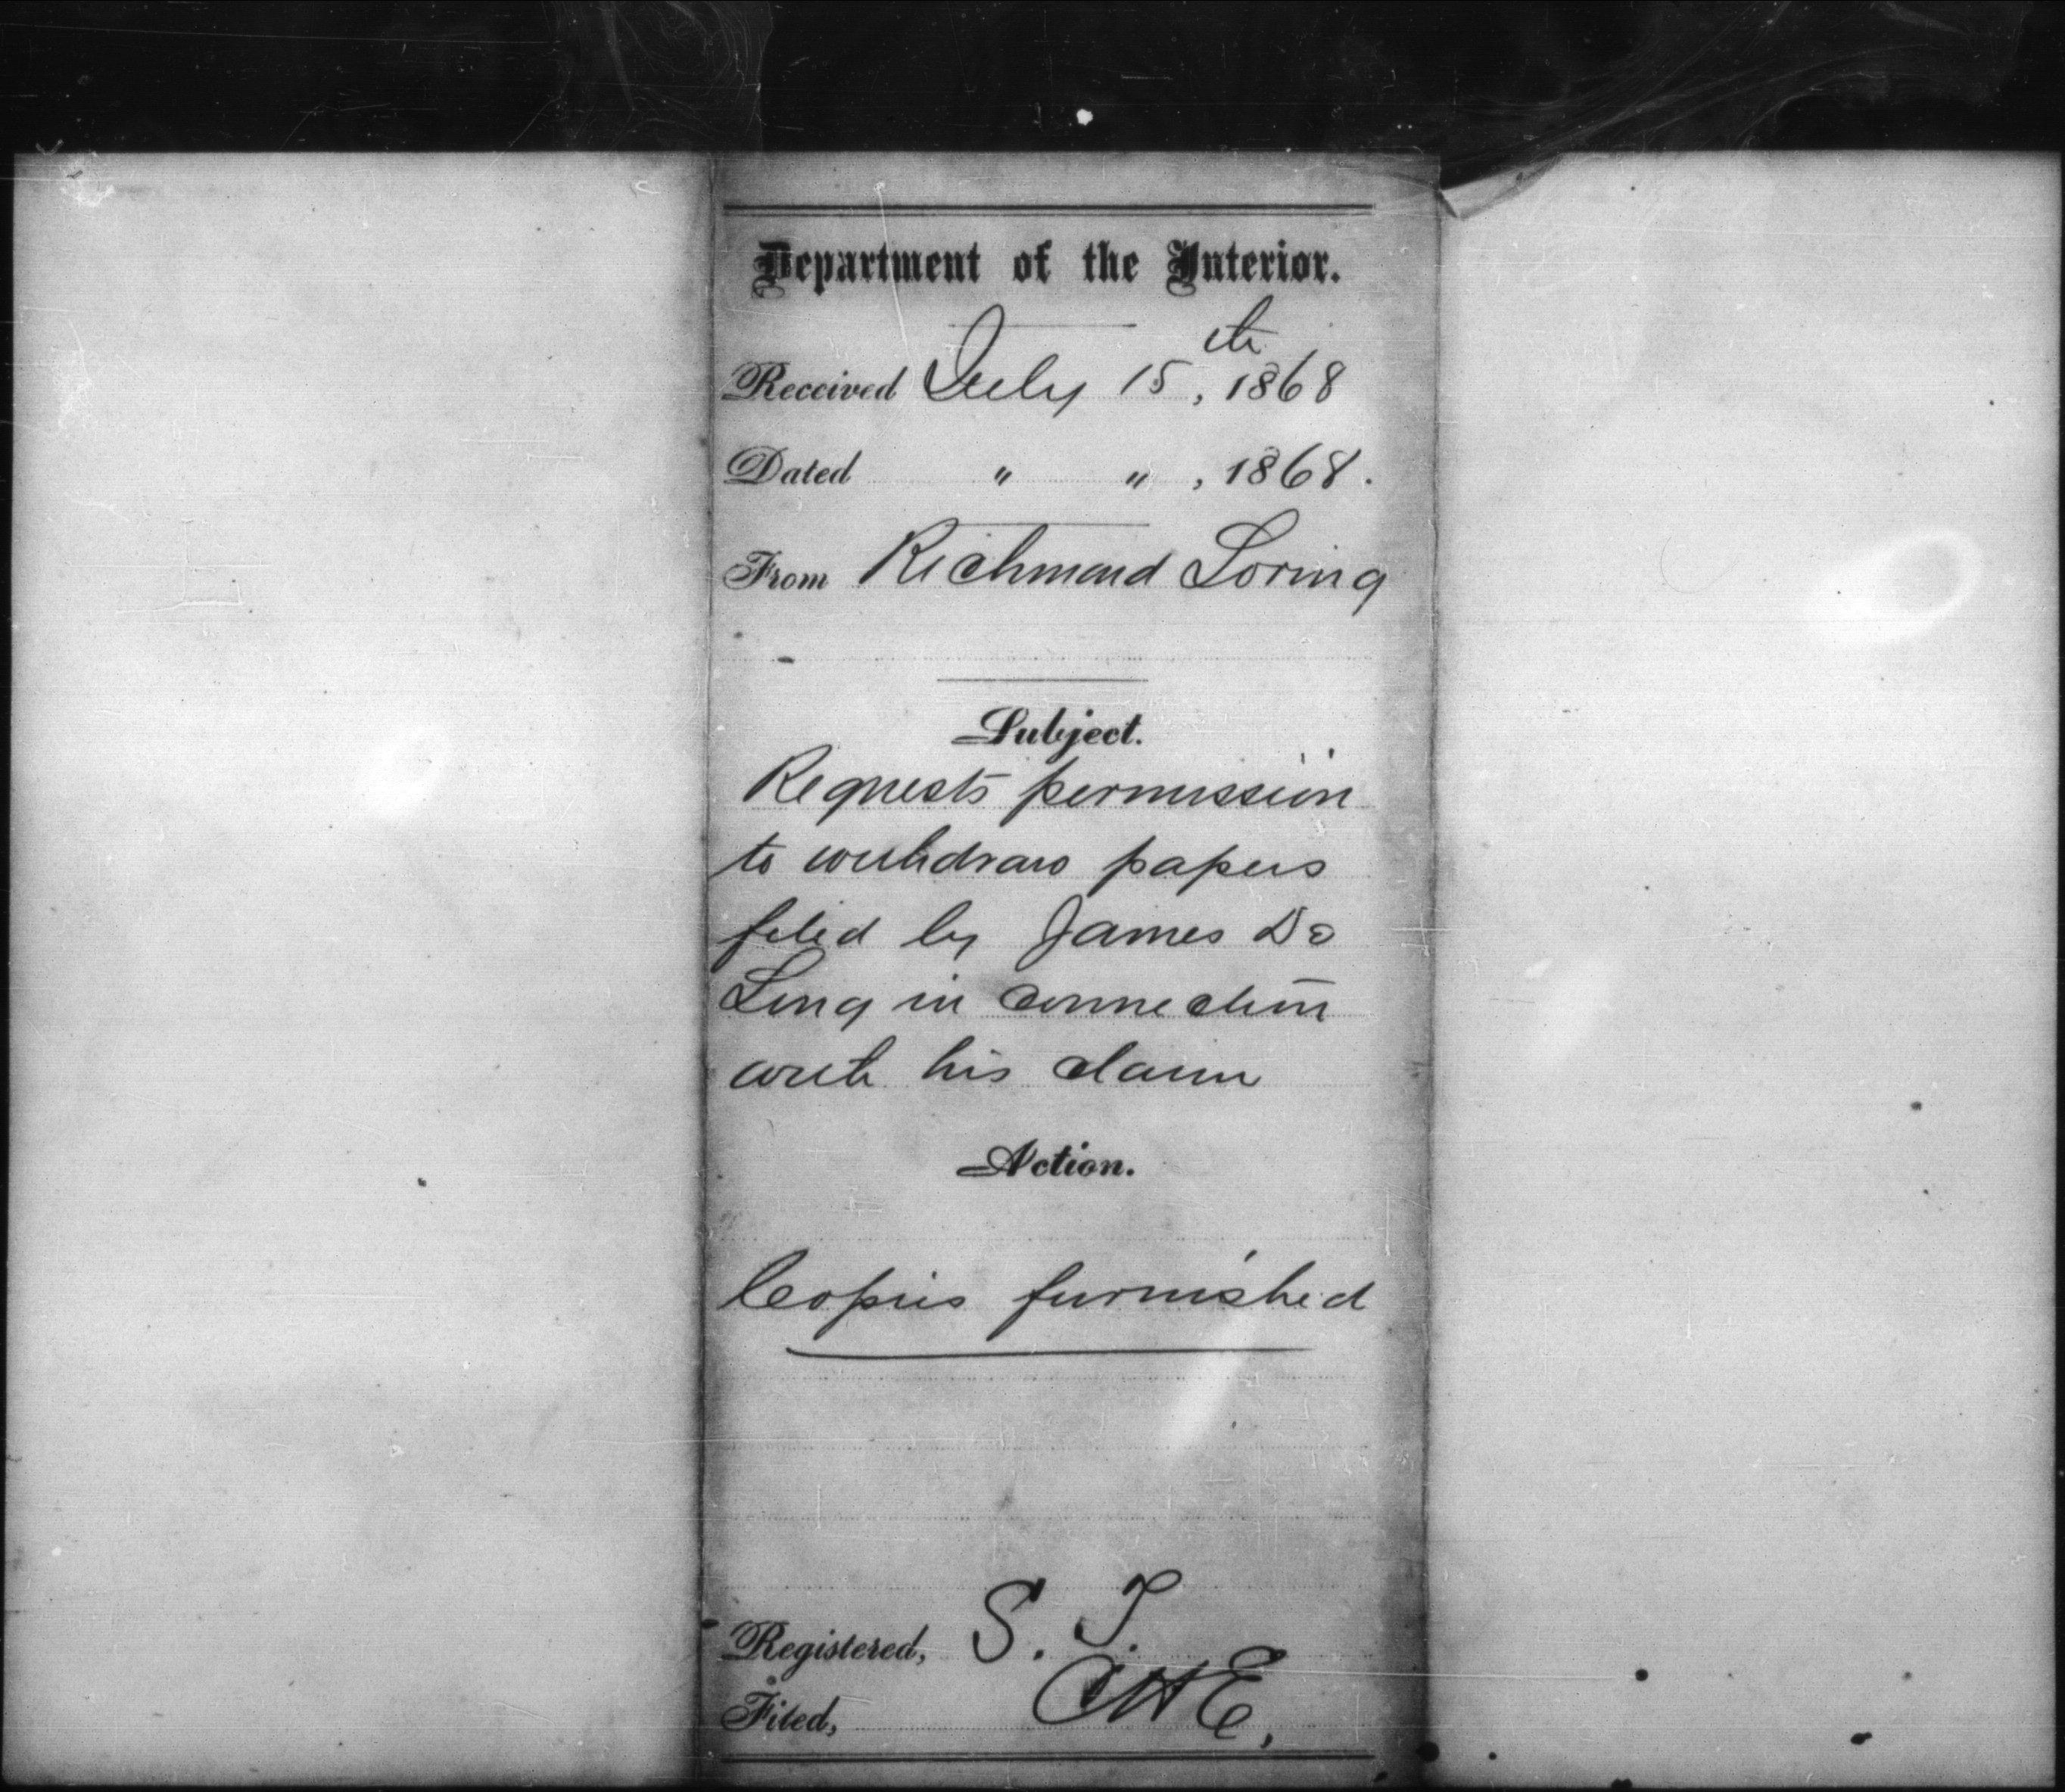 Department of the Interior.
Received July 15th, 1868
Dated " " , 1868.
From Richmond Loring
Subject.
Requests permission
to withdraw papers
filed by James Do
Long in connection
with his claim
Action.
Copies furnished
Registered, S. T.
Filed, CHE,